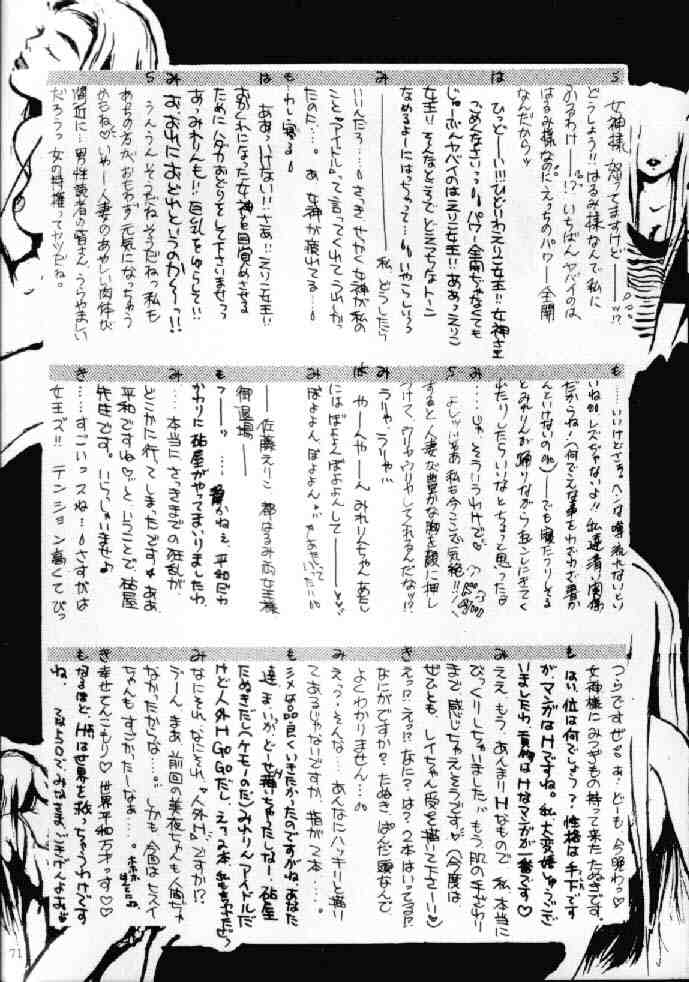 ら 女神様 怒ってますけど――ッ!?
どうしよう!!はるみ様なんで私に
ふるわけ――!?いちばんヤバイのは、
はるみ様なのにえっちのパワー全開
なんだからッ
は ひっどーい!!ひどいわえりこ女王!!女神さま
ごめんなさいっ パワー全開じゃなくても
じゅーぶんヤバイのはえりこ女王!!ああっえりこ
女王!!そんなところでどえっちなトーン
なめるよーにはっちゃって…いやらしいっっ
み ――私、どうしたら
いいんだろ…さっきせっかく女神が私の
こと“アイドル”って言ってくれてうれしかっ
たのに…。あ、女神が疲れてる…
も わし寝る
は ああっいけない!!さあ!!えりこ女王!!
おかくれになった女神を目覚めさせる
ためにハダカおどりをして下さいませっっ
あっみれりんも!!巨乳をゆらして!!
み おおおれにおどれというのか〜っ!!
ら うんうんそうだねそうだねっ私も
あっちの方が、おもわず元気になっちゃう
のよね♡いやー人妻のあやしい肉体が
間近に…男性読者の皆さん、うらやましい
だろうっ女の特権ってヤツだね。
も …いいけどさぁヘンな噂流れないといい
いね!!レズぢゃないよ!!私達清い関係
だからね!(何でこんな事をわざわざ書か
んといけないのれ)――でも寝たフリしてる
とみれりんが踊りながらおこしにきてく
れたりしたらいいなとちょっと思ったよ
み …じゃ、そういうわけで
ら よしッ!!じゃあ私も今ここで気絶!!
すると人妻が豊かな胸を顔に押し
つけて、ウリャウリャしてくれるんだなッ!?
み うりゃ、うりゃ…
は やーんやーん、みれりんちゃんあたし
にはぽよよんぽよよんして――♡
み ぽよよん、ぽよよん。
――佐藤えりこ 都はるみ両女王様
御退場――
も ふーッ…静かねぇ、平和だわ
かわりに砧屋がやってまいりましたわ
み …本当にさっきまでの狂乱が
どこかに行ってしまったです。ああ、
平和ですね♡ということで砧屋
先生です。いらっしゃいませ♪
き ……すごいっスね…さすがは
女王ズ!!テンション高くてびっ
つらですぜ。あ、どーも、今晩わっ♡
女神様にみつぎもの持って来たたぬきです。
も はい、位は何でしょう?性格は手下です
がマンガはHですね。私、大変嬉しゅうござ
いましたわ、貢物はHなマンガが一番です♡
み ええ、もう、あんまりHなもので私、本当に
びっくりしちゃいました もう肌の手ざわり
まで感じちゃえそうです(今度は
ぜひとも、レイちゃん受を描いて下さーい)
き えっ!?えっ!?なに?は?2本はいってる!?
なにがですか?たぬき、ぱんだ頭なんで
よくわかりません…
み えっっそんな…あんなにハッキリと描い
てあるじゃないですか、指が2本……。
も シメは品良くいきたかったのですがねあなた
達。
たぬきだし
けど人外H GO GOだし。
み なにそれ、なにそれ“人外H”ですか!?
うーん、まあ前回の美夜ちゃんも人間じゃ
なかったからな…。しかも今回はヒスイ
ちゃんもすごかったしなぁ…
き 幸せてんこもり♡世界平和万才っす♡
も なるほど、Hは世界を救っちゃうわけです
ね。
71